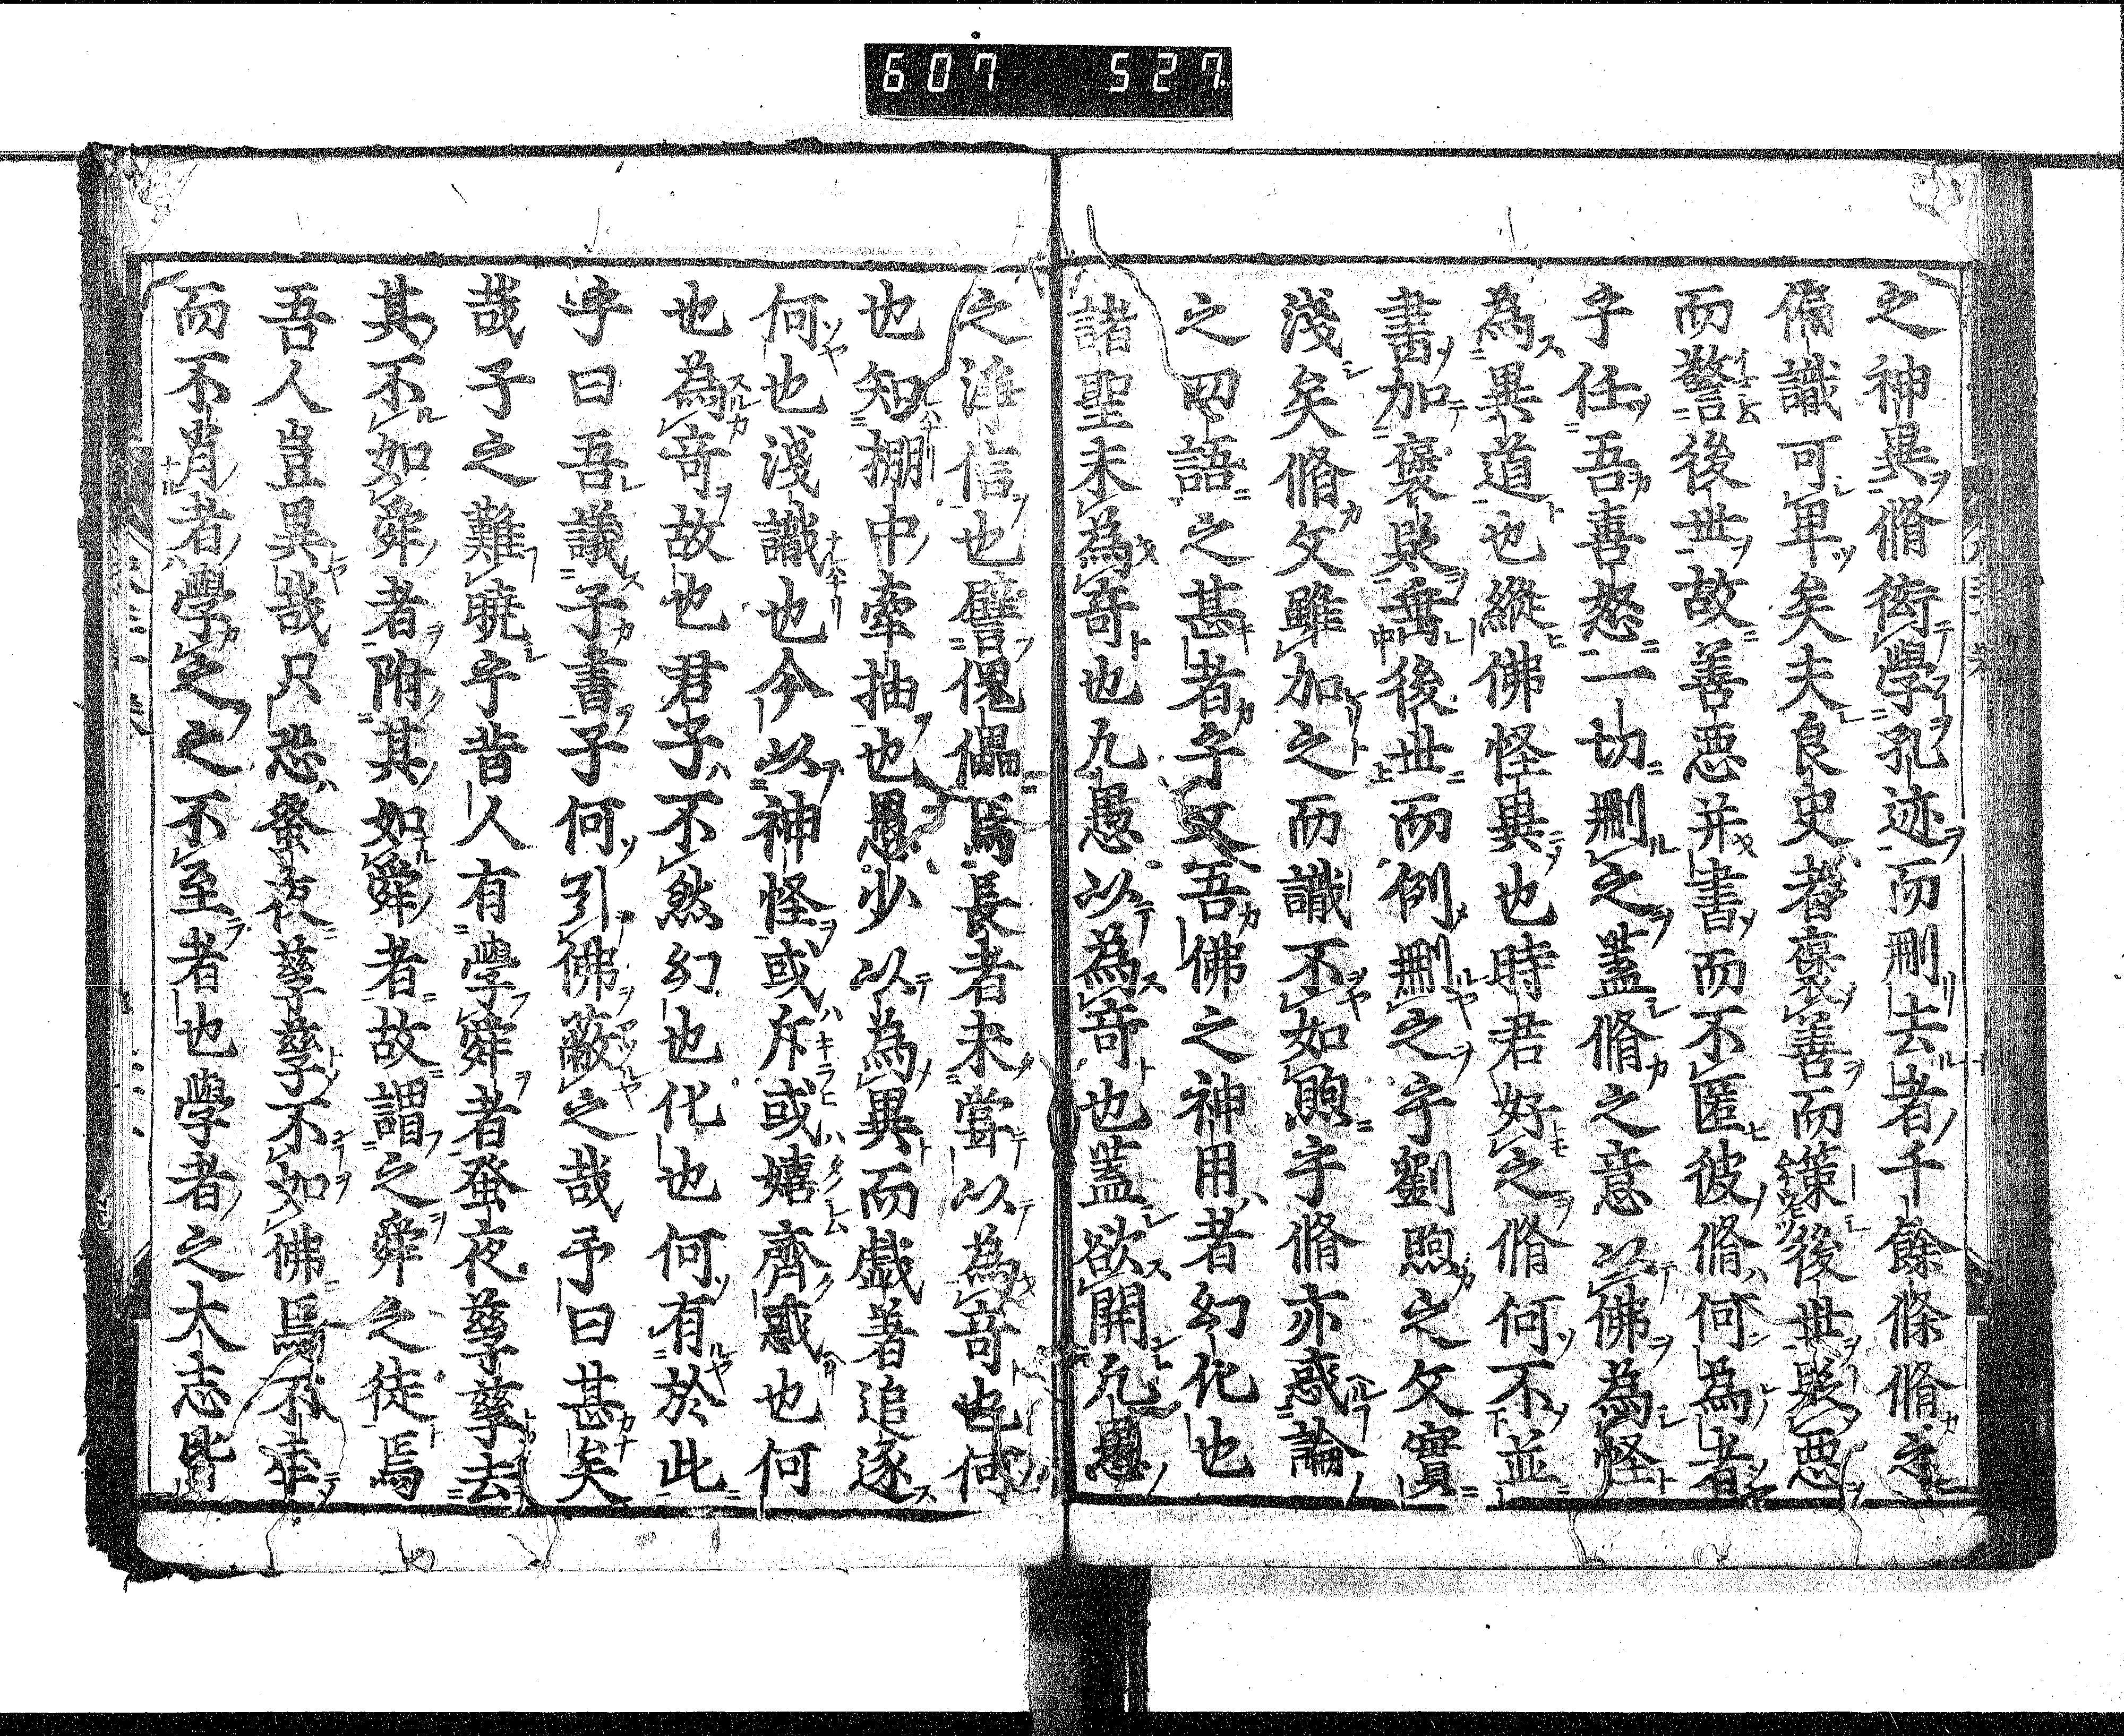 607 527
之神異脩衒學孔迹而刪去者千餘條脩之
偏識可卑矣夫良史者褒善而懲後世貶惡
而警後世故善惡并書而不匿彼脩何為者
乎任吾喜怒一切刪之蓋脩之意以佛為怪
為異道也縱佛怪異也時君好之脩何不並
書加褒貶垂後世而例刪之乎劉煦之文實
淺矣脩文雖加之而識不如煦乎脩亦惑論
之四語之甚者乎又吾佛之神用者幻化也
諸聖未為奇也凡愚以為奇也蓋欲開凡愚
之淨信也譬傀儡焉長者未嘗以為奇也何
也知棚中牽抽也愚少以為異而戲著追逐
何也淺識也今以神怪或斥或嬉齊惑也何
也為奇故也君子不然幻也化也何有於此
乎曰吾議子書子何引佛蔽之哉予曰甚矣
哉子之難曉乎昔人有學舜者蚤夜孳孳去
其不如舜者附其如舜者故謂之舜之徒焉
吾人豈異哉只恐蚤夜孳孳不如佛焉不幸
而不肖者學之之不至者也學者之大志皆